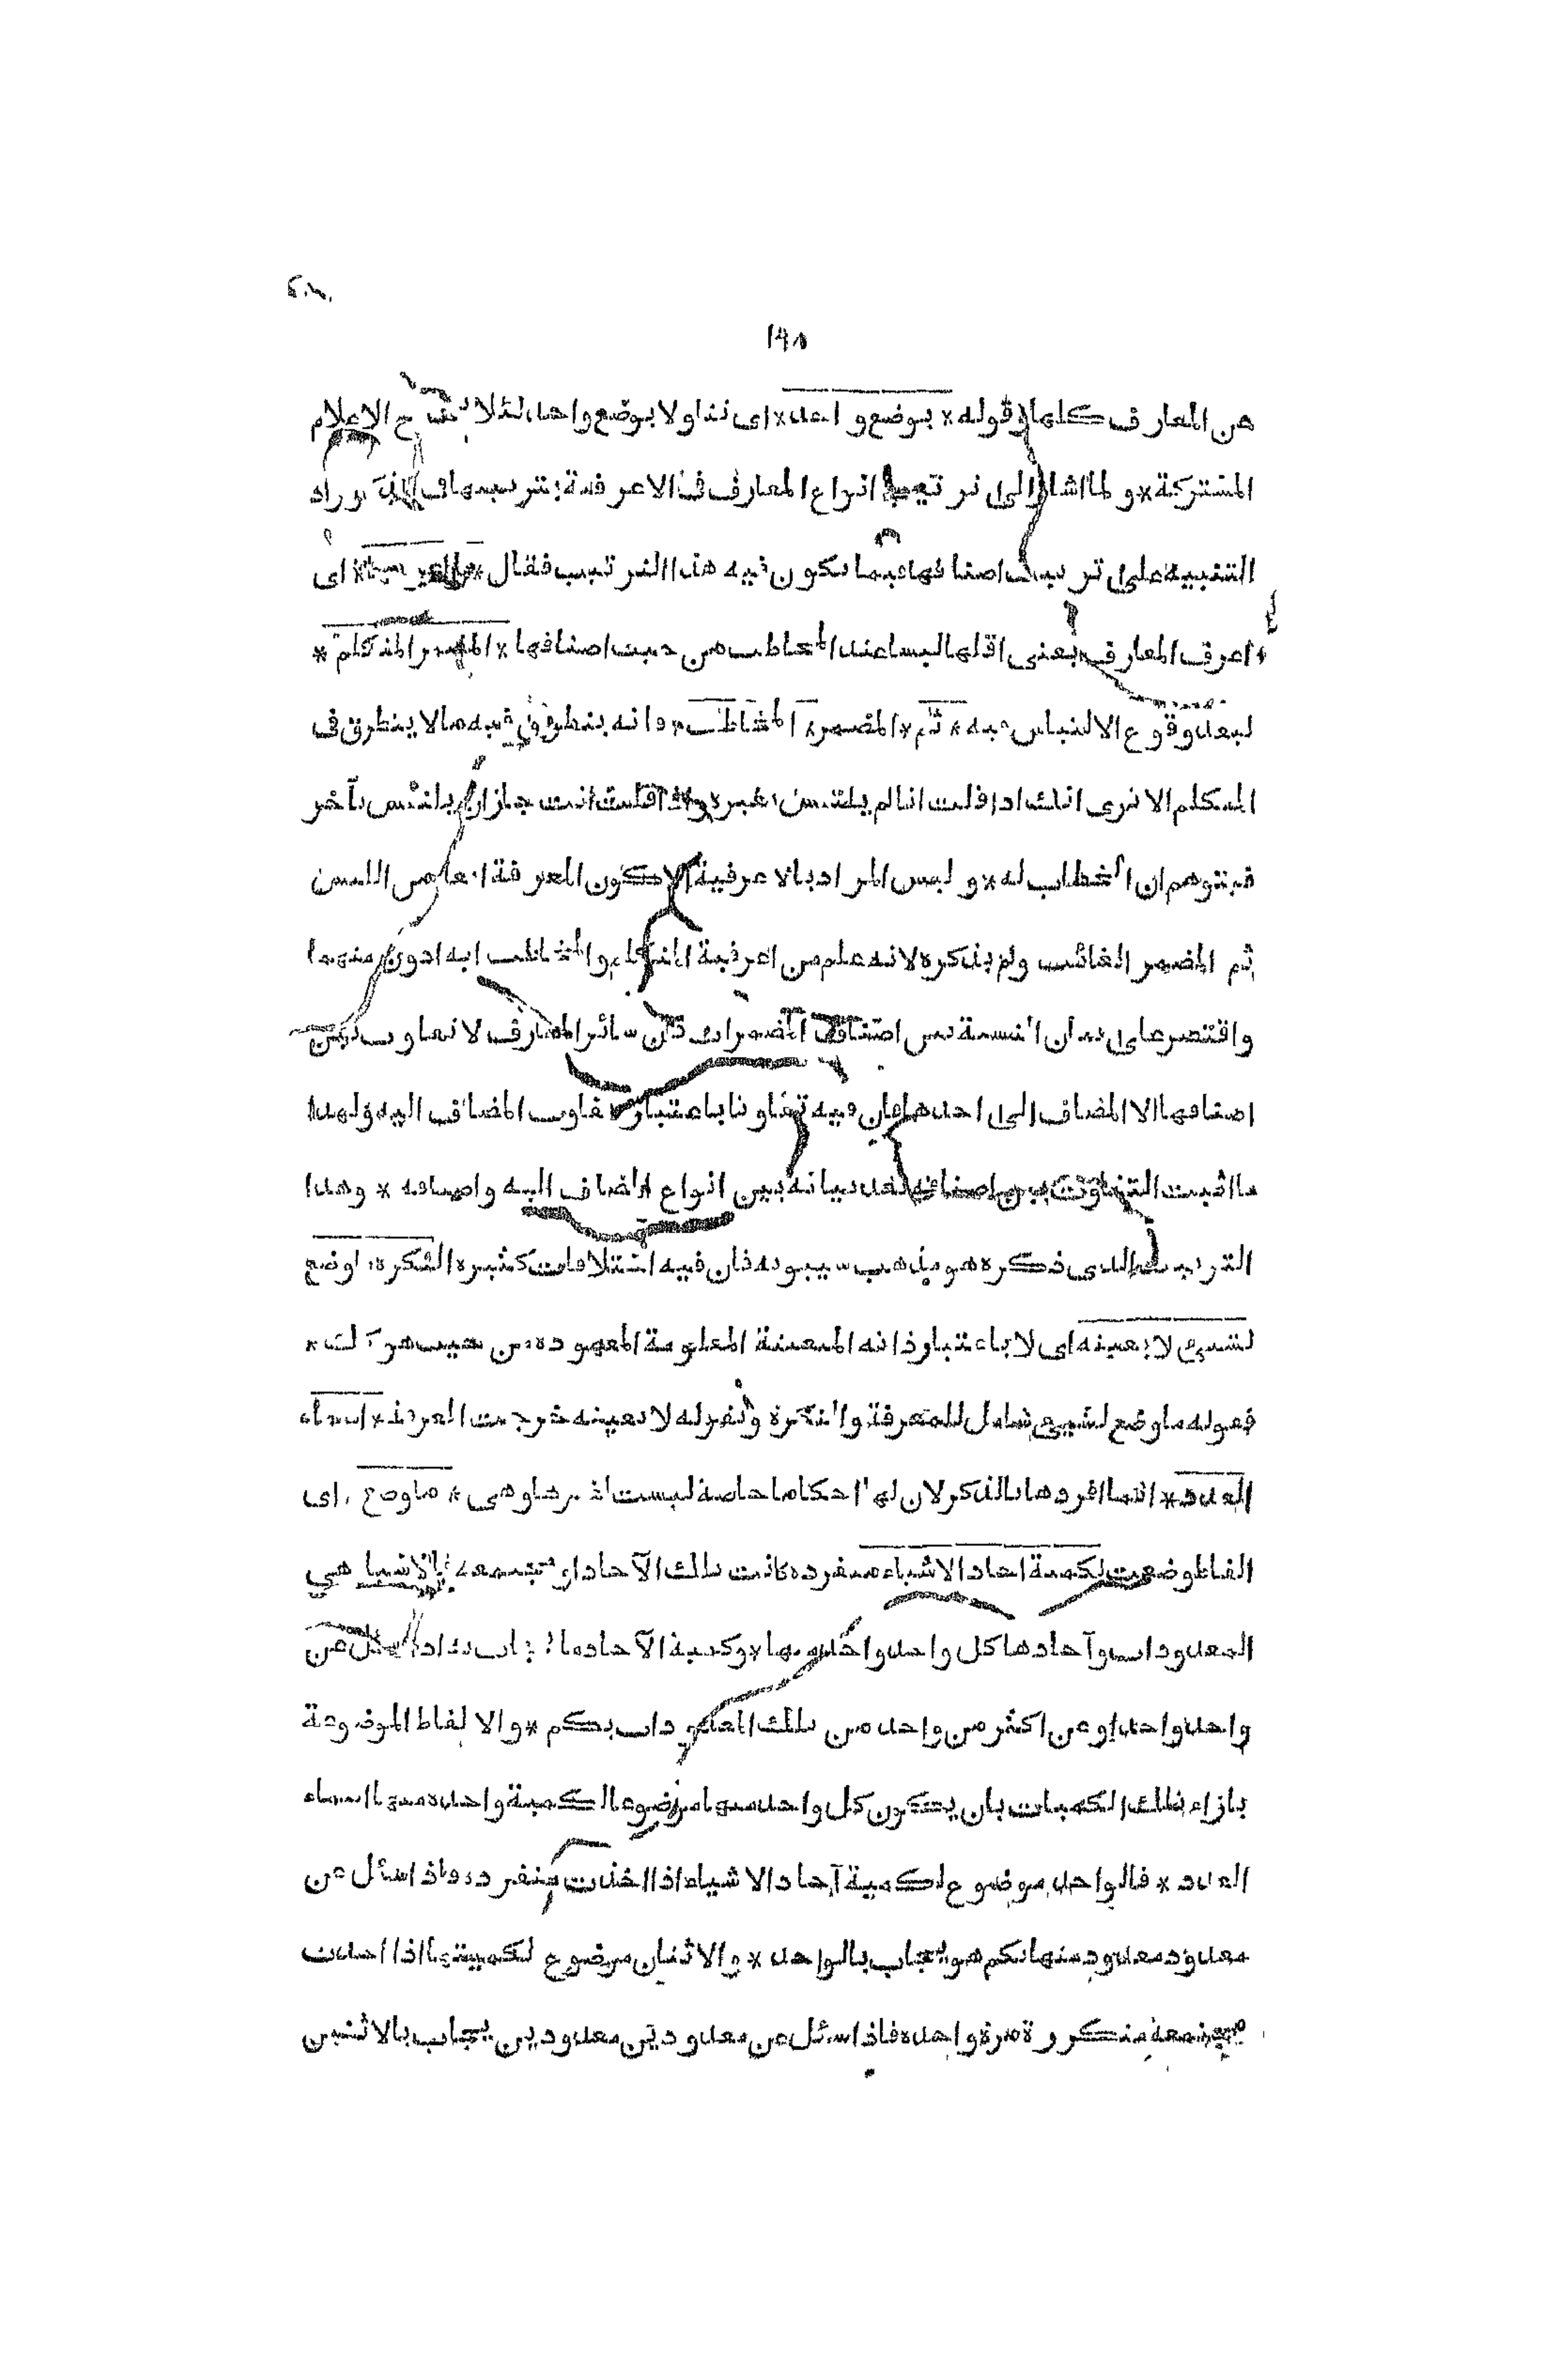 ١٩٨
من المعارف كلها و قوله * بوضع واحد * اى تناولا بوضع واحد لئلا يخرج الاعلام
المشتركة * و لما اشار الى ترتيب انواع المعارف فى الاعرفية بترتيبها فى الذكر اراد
التنبيه على ترتيب اصنافها فيما يكون فيه هذا الترتيب فقال * اى
اعرف المعارف بمعنى اقلها لبسا عند المخاطب من حيث اصنافها * المضمر المتكلم *
لبعد وقوع الالتباس فيه * ثم * المضمر * المخاطب * فانه يتطرق فيه ما لا يتطرق فى
المتكلم الا ترى انك اذا قلت انا لم يلتبس بغيره واذا قلت انت جاز ان يلتبس بآخر
فيتوهم ان الخطاب له * و ليس المراد بالاعرفية الا كون المعرفة ابعد من اللبس
ثم المضمر الغائب ولم يذكره لانه علم من اعرفية المتكلم والمخاطب انه ادون منهما
واقتصر على بيان النسبة بين اصناف المضمرات فان سائر المعارف لا تفاوت بين
اصنافها الا المضاف الى احدها فان فيه تفاوتا باعتبار تفاوت المضاف اليه ولهذا
ما اثبت التفاوت بين اصنافه بعد بيانه بين انواع المضاف اليه واصنافه * وهذا
الترتيب الذى ذكره هو مذهب سيبويه فان فيه اختلافات كثيرة النكرة ما وضع
لشىء لا بعينه اى لا باعتبار ذاته المعينة المعلومة المعهودة من حيث هو كذلك *
فقوله ما وضع لشىء شامل للمعرفة والنكرة وبقوله لا بعينه خرجت المعرفة * اسماء
العدد * انما افردها بالذكر لان لها احكاما خاصة ليست لغيرها وهى * ما وضع * اى
الفاظ وضعت لكمية احاد الاشياء منفردة كانت تلك الآحاد او مجتمعة فالاشياء هى
المعدودات وآحادها كل واحد واحد منها * وكمية الآحاد ما يجاب به اذا سئل عن
واحد واحد او عن اكثر من واحد من تلك المعدودات بكم * والالفاظ الموضوعة
بازاء تلك الكميات بان يكون كل واحد منها موضوعا لكمية واحدة منها اسماء
العدد * فالواحد موضوع لكمية آحاد الاشياء اذا اخذت منفردة فاذا سئل عن
معدود معدود منها بكم هو يجاب بالواحد * و الاثنان موضوع لكميتها اذا اخذت
مجتمعة متكررة مرة واحدة فاذا سئل عن معدودين معدودين يجاب بالاثنين